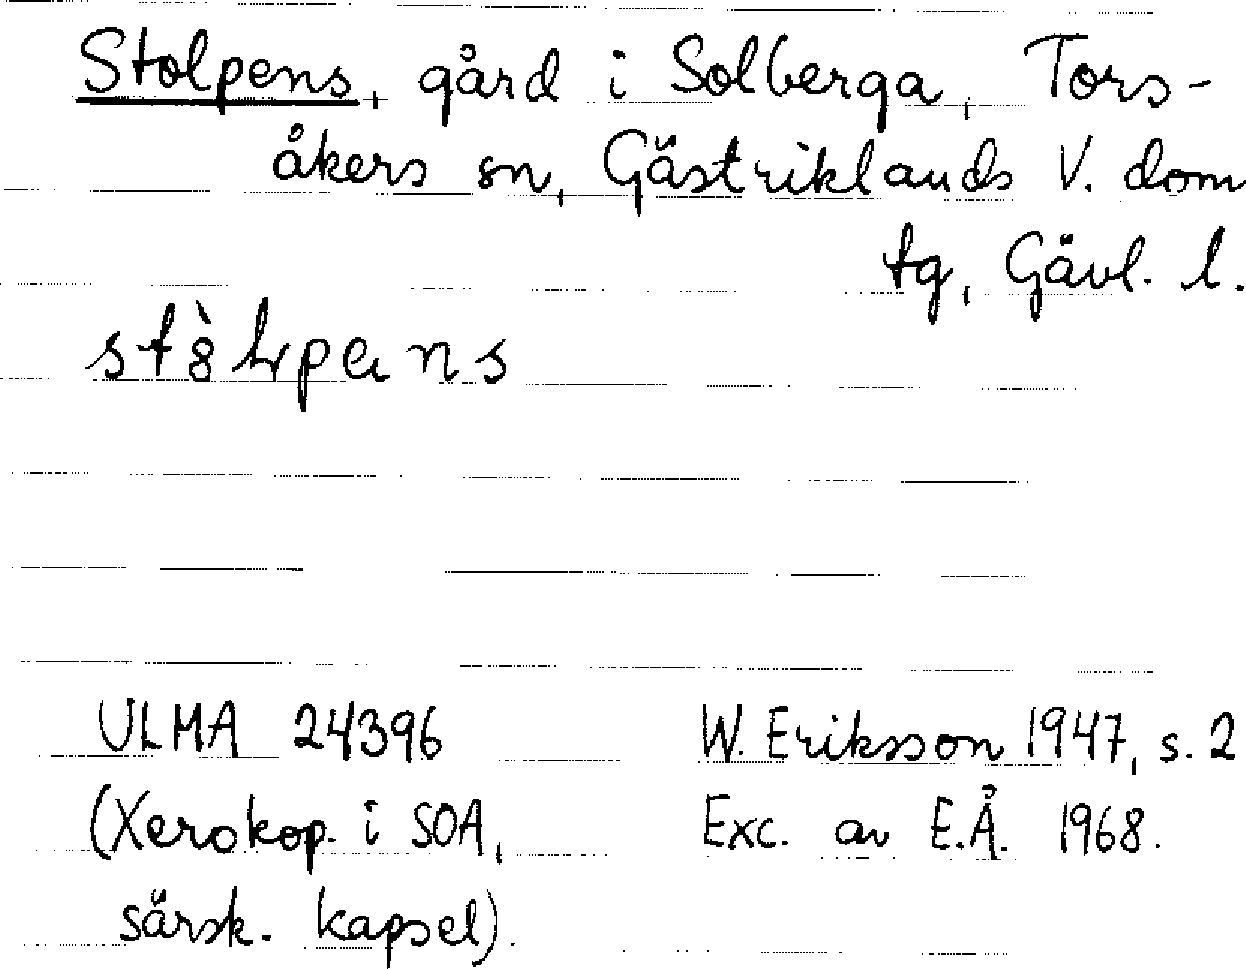 Stolpens, gård i Solberga, Tors-
åkers sn, Gästriklands V. dom
tg, Gävl. l.
ULMA 24396
(Xerokop. i SOA,
särsk. kapsel).
W. Eriksson 1947, s. 2
Exc. av E.Å. 1968.